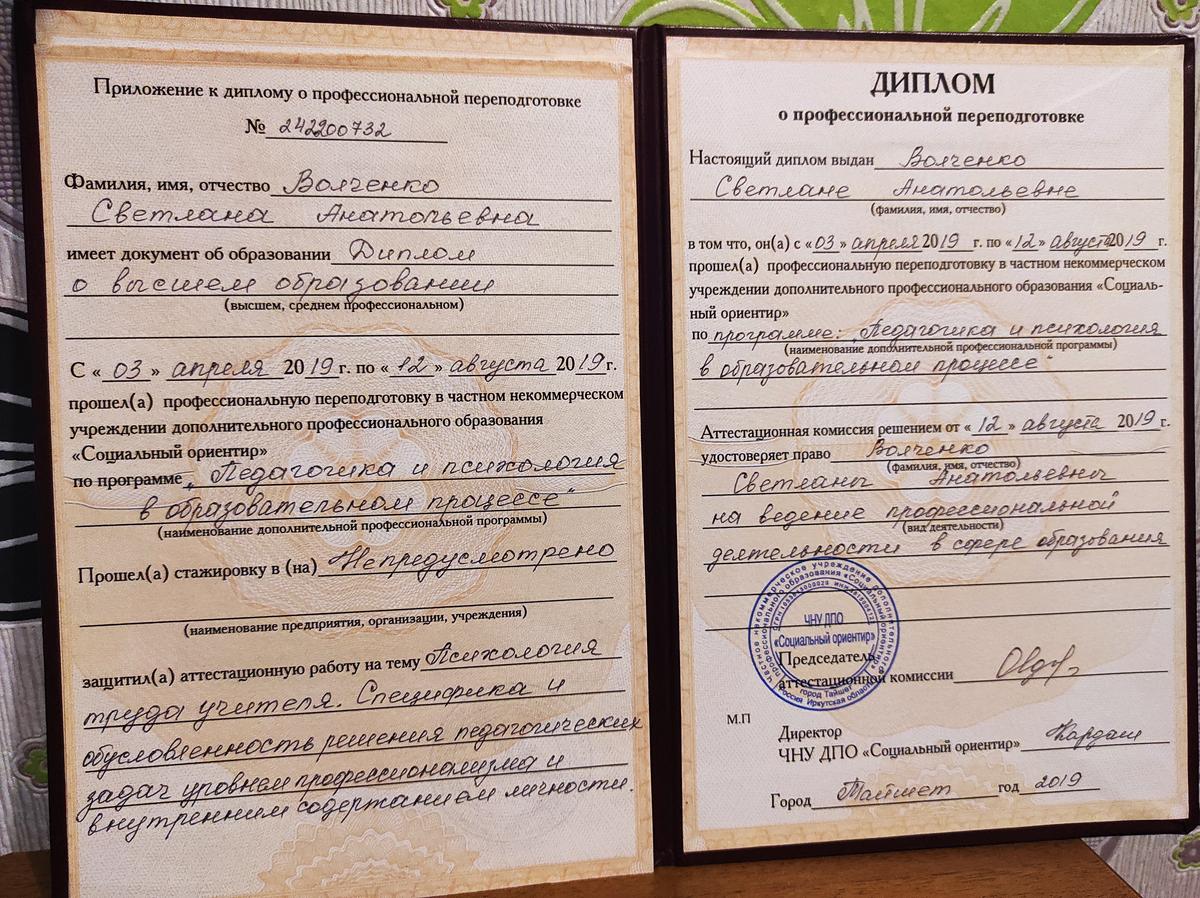 Приложение к диплому о профессиональной переподготовке
№ 242200732
Фамилия, имя, отчество Волченко
Светлана Анатольевна
имеет документ об образовании Диплом
о высшем образовании
(высшем, среднем профессиональном)
С «03» апреля 2019 г. по «12» августа 2019 г.
прошел(а) профессиональную переподготовку в частном некоммерческом
учреждении дополнительного профессионального образования
«Социальный ориентир»
по программе „Педагогика и психология
в образовательном процессе“
(наименование дополнительной профессиональной программы)
Прошел(а) стажировку в (на) Не предусмотрено
(наименование предприятия, организации, учреждения)
защитил(а) аттестационную работу на тему Психология
труда учителя. Специфика и
обусловленность решения педагогических
задач уровнем профессионализма и
внутренним содержанием личности.
ДИПЛОМ
о профессиональной переподготовке
Настоящий диплом выдан Волченко
Светлане Анатольевне
(фамилия, имя, отчество)
в том что, он(а) с «03» апреля 2019 г. по «12» августа 2019 г.
прошел(а) профессиональную переподготовку в частном некоммерческом
учреждении дополнительного профессионального образования «Социаль-
ный ориентир»
по программе: „Педагогика и психология
(наименование дополнительной профессиональной программы)
в образовательном процессе“
Аттестационная комиссия решением от «12» августа 2019 г.
удостоверяет право Волченко
(фамилия, имя, отчество)
Светланы Анатольевны
на ведение профессиональной
(вид деятельности)
деятельности в сфере образования
частное некоммерческое учреждение дополнительного
профессионального образования «Социальный ориентир»
ЧНУ ДПО
«Социальный ориентир»
город Тайшет
Россия Иркутская область
Председатель
аттестационной комиссии
М.П
Директор
ЧНУ ДПО «Социальный ориентир» Кардаш
Город Тайшет год 2019